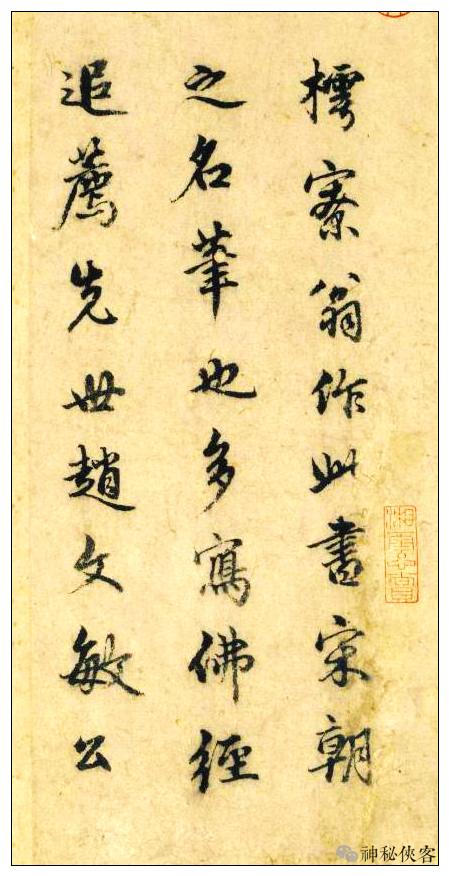 樗寮翁作此書宋朝
之名筆也多寫佛經
追薦先世趙文敏公
神秘俠客